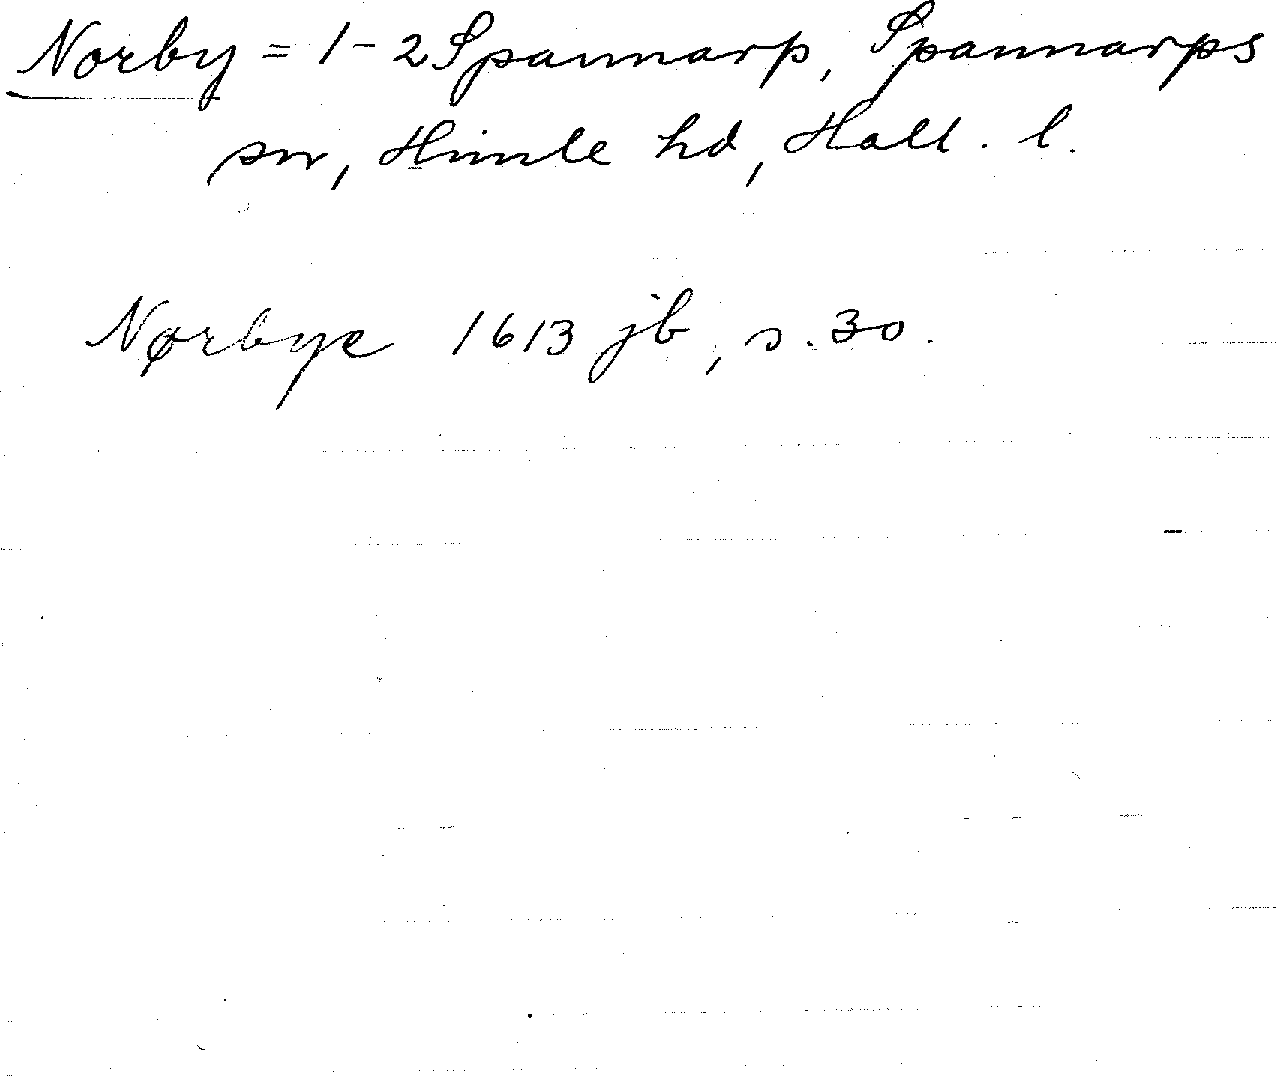 Norby = 1-2 Spannarp, Spannarps
sn, Himle hd, Hall. l.
Nørbye 1613 jb, s. 30.